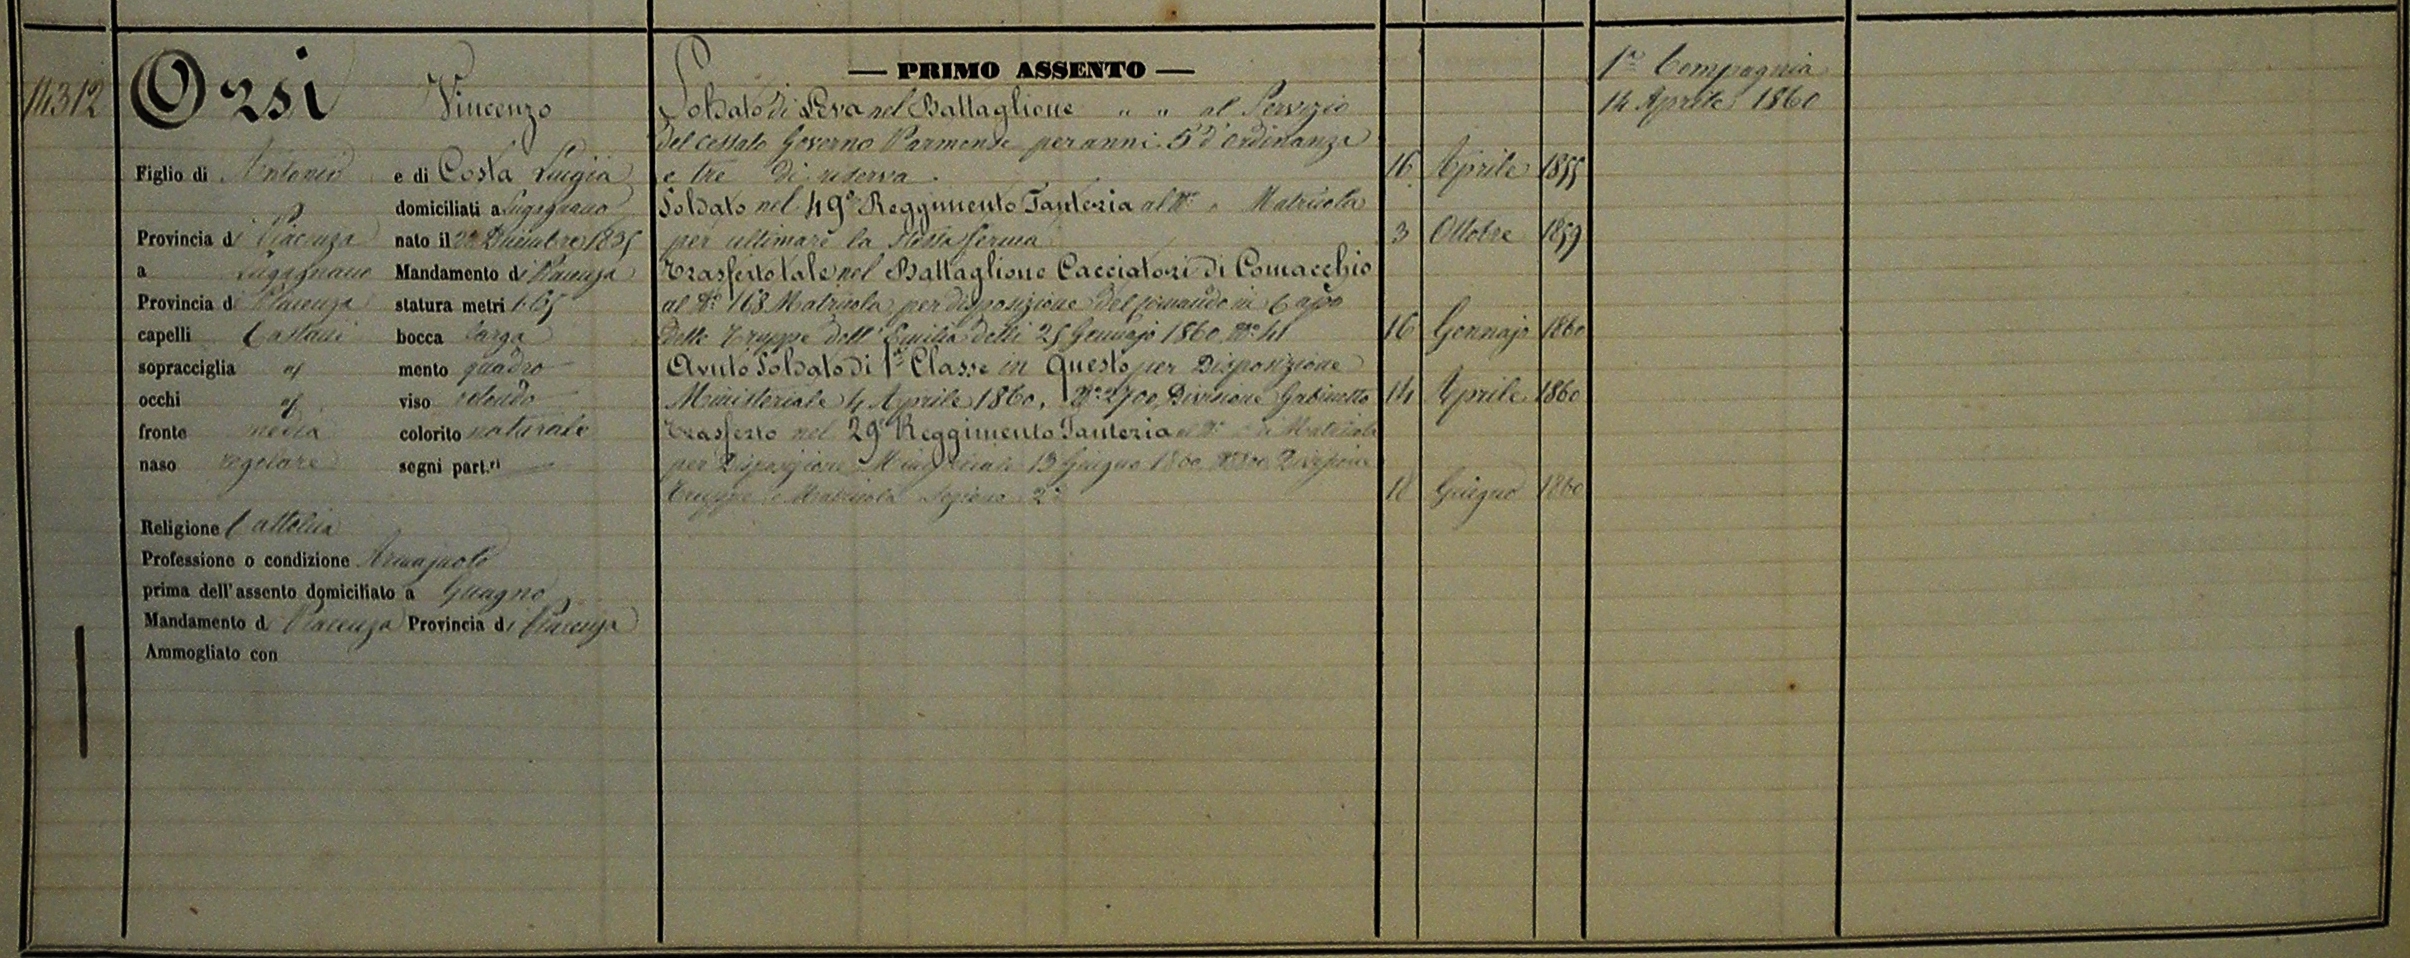 14312
Orsi Vincenzo
Figlio di Antonio e di Costa Luigia
domiciliati a Lugagnano
Provincia di Piacenza nato il Dicembre 1835
a Lugagnano Mandamento di Piacenza
Provincia di Piacenza statura metri 1.65
capelli Castani bocca larga
sopracciglia id mento quadro
occhi id viso rotondo
fronte media colorito naturale
naso regolare segni part.ri —
Religione Cattolica
Professione o condizione
prima dell'assento domiciliato a
Mandamento di Piacenza Provincia di Piacenza
Ammogliato con
— PRIMO ASSENTO —
Soldato di Leva nel Battaglione " " al Servizio
del cessato Governo Parmense per anni 5 d'ordinanza
e tre di riserva. 16 Aprile 1855
Soldato nel 49° Reggimento Fanteria al N° " Matricola
per ultimare la stessa ferma 3 Ottobre 1859
Trasferto tale nel Battaglione Cacciatori di Comacchio
al N° 168 Matricola per disposizione del Comando in Capo
delle Truppe dell'Emilia delli 25 Gennajo 1860 N° 41 16 Gennajo 1860
Avuto Soldato di 1a Classe in Questo per Disposizione
Ministeriale 4 Aprile 1860, N° 2700, Divisione Gabinetto 14 Aprile 1860
Trasferto nel 29° Reggimento Fanteria al N° di Matricola
per Disposizione Ministeriale 13 Giugno 1860 Divisione
Truppe e Matricola Sezione 2a 18 Giugno 1860
1a Compagnia
14 Aprile 1860